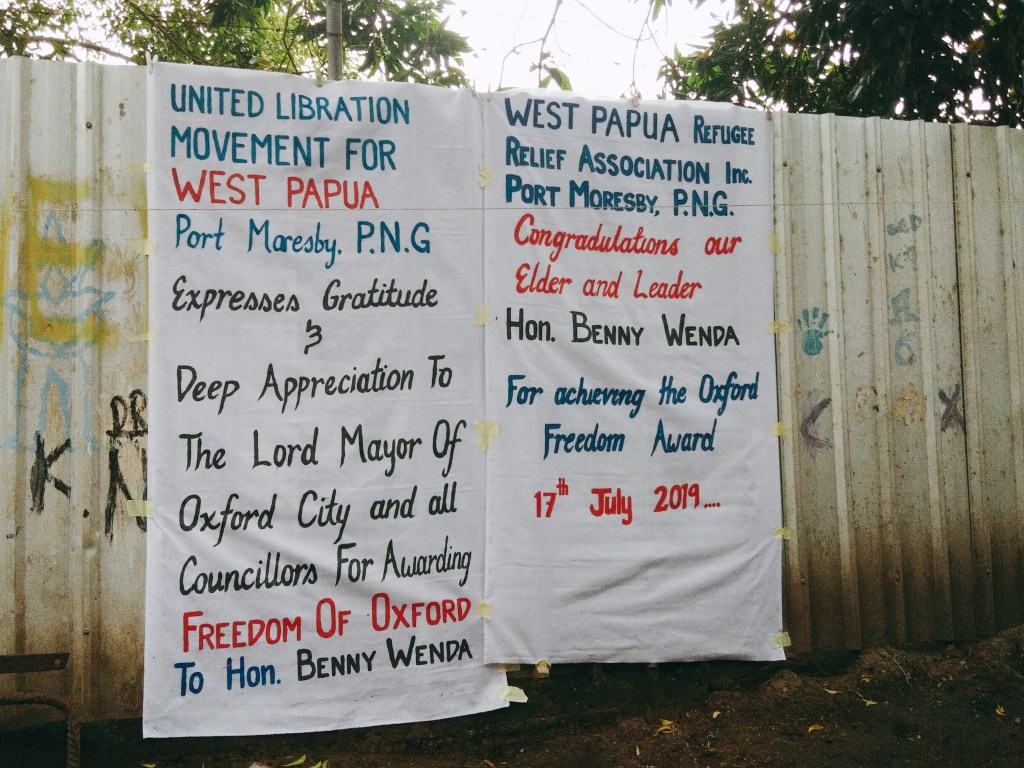 UNITED LIBRATION
MOVEMENT FOR
WEST PAPUA
Port Moresby. P.N.G
Expresses Gratitude
&
Deep Appreciation To
The Lord Mayor Of
Oxford City and all
Councillors For Awarding
FREEDOM OF OXFORD
To Hon. BENNY WENDA
WEST PAPUA REFUGEE
RELIEF ASSOCIATION Inc.
PORT MORESBY, P.N.G.
Congradulations our
Elder and Leader
Hon. BENNY WENDA
For achieving the Oxford
Freedom Award
17th July 2019....